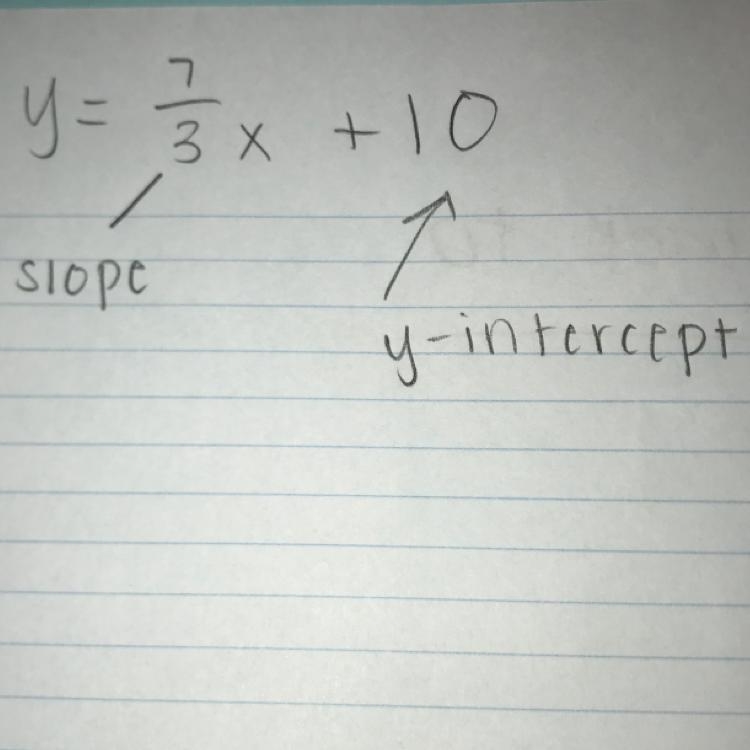 y = 7/3 x + 10
slope
y-intercept